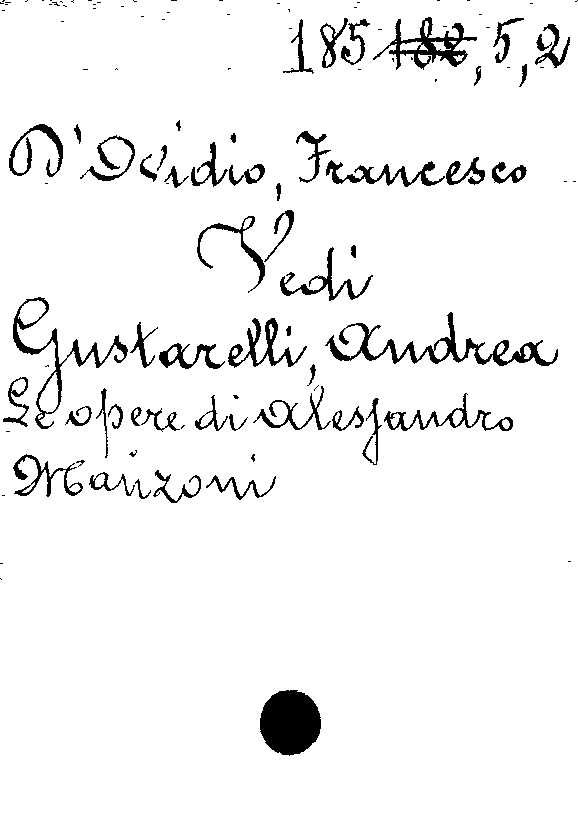 185 182, 5, 2
D'Ovidio, Francesco
Vedi
Gustarelli, Andrea
Le opere di Alessandro
Manzoni